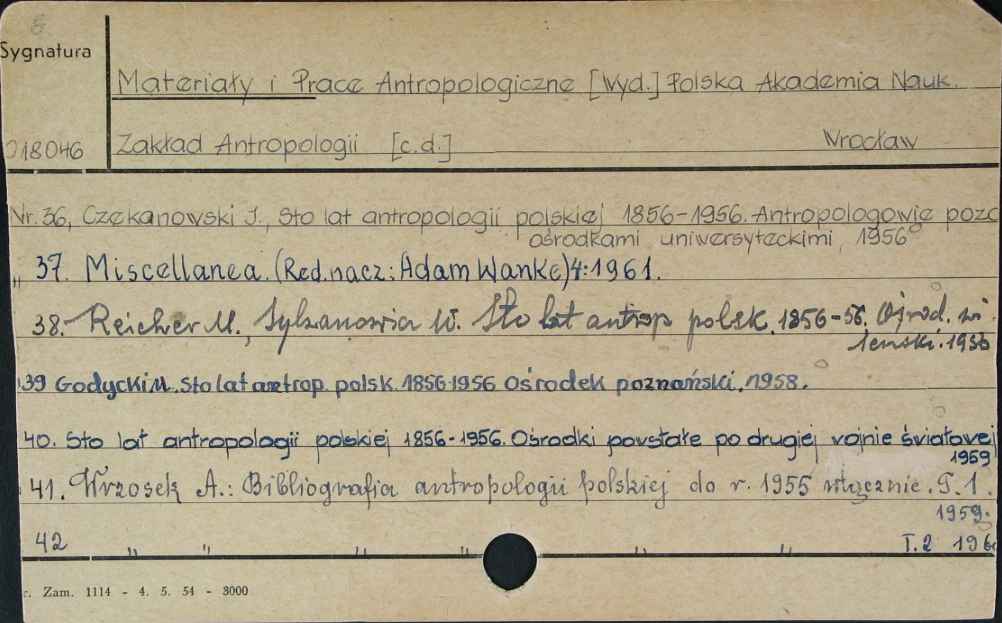 Sygnatura
Materiały i Prace Antropologiczne [Wyd.] Polska Akademia Nauk.
18046 Zakład Antropologii [c.d.] Wrocław
Nr. 36, Czekanowski J., Sto lat antropologii polskiej 1856-1956. Antropologowie poza
ośrodkami uniwersyteckimi, 1956
„ 37. Miscellanea. (Red. nacz: Adam Wanke) 4:1961.
38. Reicher M., Sylwanowicz W. Sto lat antrop polsk. 1856-56. Ośrod. wi
leński. 1956
39 Godycki M. Sto lat antrop. polsk. 1856 1956 Ośrodek poznański. 1958.
40. Sto lat antropologii polskiej 1856-1956. Ośrodki powstałe po drugiej wojnie światowej
1959
41. Wrzosek A.: Bibliografia antropologii polskiej do r. 1955 włącznie. T. 1.
1959.
42 „ „ „ „ „ „ T. 2 196
r. Zam. 1114 - 4. 5. 54 - 3000